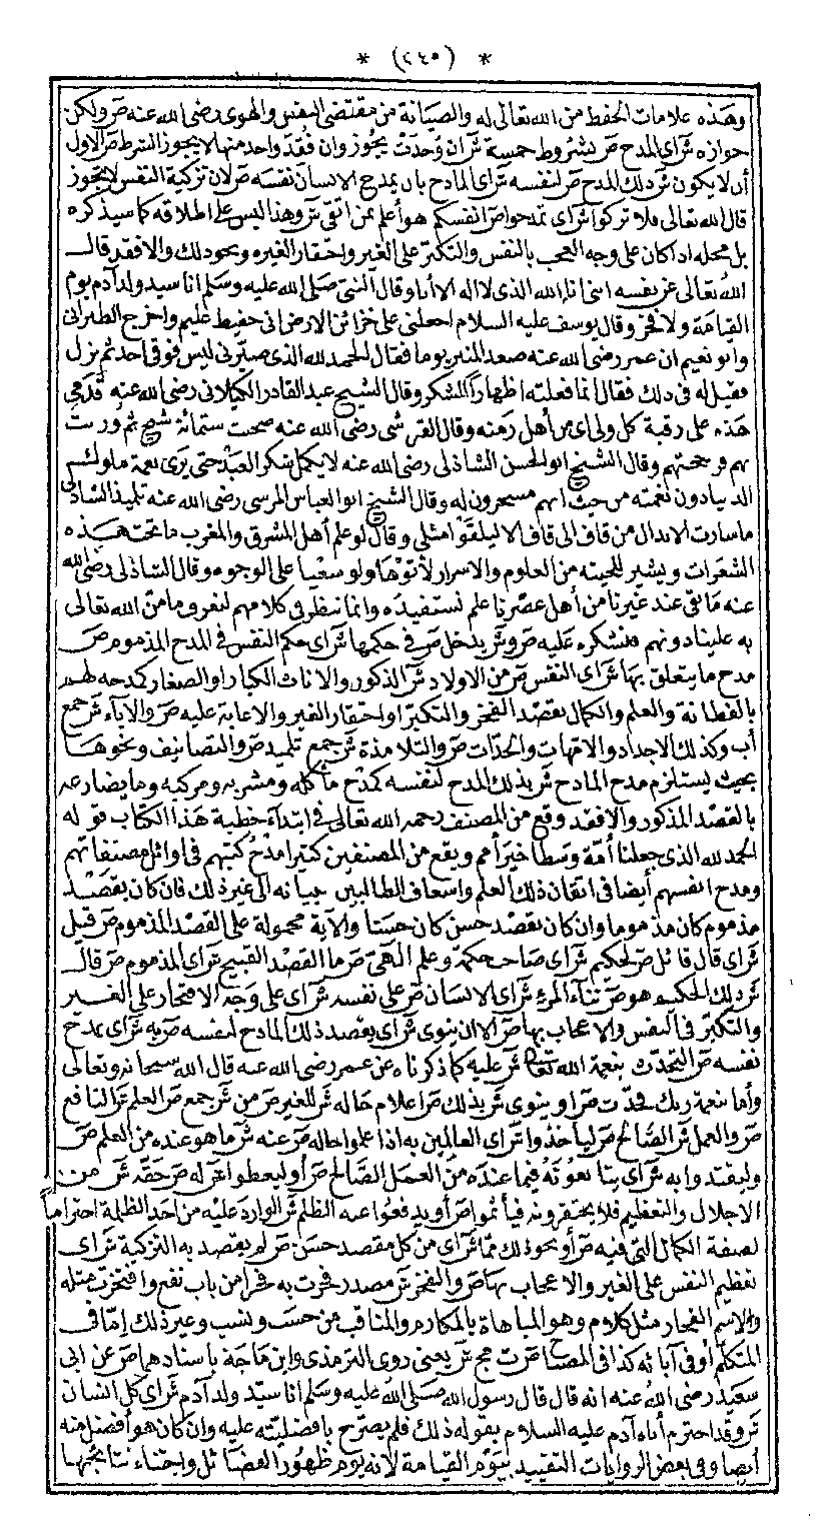 * (٢٤٥) *
وهذه علامات الحفظ من الله تعالى له والصيانة من مقتضى النفس والهوى رضى الله عنه ص ولكن
جوازه ش أى المدح ص بشروط خمسة ش ان وُجدت يجوز وان فُقد واحد منها لا يجوز الشرط ص الاول
أن لا يكون ش ذلك المدح ص لنفسه ش أى المادح بان يمدح الانسان نفسه ص لان تزكية النفس لا يجوز
قال الله تعالى فلا تزكوا ش أى تمدحوا ص أنفسكم هو أعلم بمن اتقى ش وهذا ليس على اطلاقه كما سيذكره
بل محله اذا كان على وجه العجب بالنفس والتكبر على الغير واحتقار الغير ونحو ذلك والا فقد قال
الله تعالى عن نفسه اننى أنا الله الذى لا اله الا أنا وقال النبى صلى الله عليه وسلم أنا سيد ولد آدم يوم
القيامة ولا فخر وقال يوسف عليه السلام اجعلنى على خزائن الارض انى حفيظ عليم واخرج الطبرانى
وابو نعيم ان عمر رضى الله عنه صعد المنبر يوما فقال الحمد لله الذى صيّرنى ليس فوقى احد ثم نزل
فقيل له فى ذلك فقال انما فعلته اظهاراً للشكر وقال الشيخ عبد القادر الكيلانى رضى الله عنه قدمى
هذه على رقبة كل ولى اى من أهل زمنه وقال القرشى رضى الله عنه صحبت ستمائة شيخ ثم وزنت
بهم فرجحتهم وقال الشيخ ابو الحسن الشاذلى رضى الله عنه لا يكمل شكر العبد حتى يرى نعمة ملوك
الدنيا دون نعمته من حيث انهم مسخرون له وقال الشيخ ابو العباس المرسى رضى الله عنه تلميذ الشاذلى
ما سارت الابدال من قاف الى قاف الا ليلقوا مثلى وقال لو علم أهل المشرق والمغرب ما تحت هذه
الشعرات ويشير للحيته من العلوم والاسرار لأتوْها ولو سعيا على الوجوه وقال الشاذلى رضى الله
عنه ما بقى عند غيرنا من أهل عصرنا علم نستفيده وانما ننظر فى كلامهم لنعرف ما منّ الله تعالى
به علينا دونهم فنشكره عليه ص و ش يدخل ص فى حكمها ش أى حكم النفس فى المدح المذموم ص
مدح ما يتعلق بها ش أى النفس ص من الاولاد ش الذكور والاناث الكبار او الصغار كمدحه لهم
بالفطانة والعلم والكمال بقصد الفخر والتكبر او احتقار الغير والاعابة عليه ص والآباء ش جمع
أب وكذلك الاجداد والامهات والجدّات ص والتلامذة ش جمع تلميذ ص والتصانيف ونحوها
بحيث يستلزم مدح المادح ش بذلك المدح لنفسه كمدح مأكله ومشربه ومركبه وما يضارعه
بالقصد المذكور والا فقد وقع من المصنف رحمه الله تعالى فى ابتداء خطبة هذا الكتاب قوله
الحمد لله الذى جعلنا أمّة وسطا خير أمم ويقع من المصنفين كثيرا مدحُ كتبهم فى اوائل مصنفاتهم
ومدح انفسهم أيضا فى اتقان ذلك العلم واسعاف الطالبين ببيانه الى غير ذلك فان كان بقصد
مذموم كان مذموما وان كان بقصد حسن كان حسنا والآية محمولة على القصد المذموم ص قيل
ش أى قال قائل ص لحكيم ش أى صاحب حكمة وعلم الهىّ ص ما القصد القبيح ش أى المذموم ص قال
ش ذلك الحكيم هو ص ثناء المرء ش أى الانسان ص على نفسه ش أى على وجه الافتخار على الغير
والتكبر فى النفس والاعجاب بها ص الا ان ينوى ش أى يقصد ذلك المادح لنفسه ص به ش أى بمدح
نفسه ص التحدّث بنعمة الله تعالى ش عليه كما ذكرناه عن عمر رضى الله عنه قال الله سبحانه وتعالى
وأما بنعمة ربك فحدّث ص او ينوى ش بذلك ص اعلام حاله ش للغير ص من ش جمع ص العلم ش النافع
ص والعمل ش الصّالح ص ليأخذوا ش أى العالمين به اذا علموا حاله ص عنه ش ما هو عنده من العلم ص
وليقتدوا به ش أى يتابعوُنه فيما عنده من العمل الصّالح ص أو ليعطوا ش له ص حقه ش من
الاجلال والتعظيم فلا يحتقرونه فيأثموا ص أو يدفعوا عنه الظلم ش الوارد عليه من احد الظلمة احتراماً
لصفة الكمال التى فيه ص أو نحو ذلك ممّا ش أى من كل مقصد حسن ص لم يقصد به التزكية ش أى
تعظيم النفس على الغير والاعجاب بها ص والفخر ش مصدر فخرت به فخرا من باب نفع وافتخرت مثله
والاسم الفخار مثل كلام وهو المباهاة بالمكارم والمناقب من حسب ونسب وغير ذلك إمّا فى
المتكلّم أو فى آبائه كذا فى المصباح ص ت مج ش يعنى روى الترمذى وابن ماجة باسنادهما ص عن ابى
سعيد رضى الله عنه انه قال قال رسول الله صلى الله عليه وسلم أنا سيّد ولد آدم ش أى كل انسان
ش وقد احترم أباه آدم عليه السلام بقوله ذلك فلم يصرّح بافضليّته عليه وان كان هو أفضل منه
أيضا وفى بعض الروايات التقييد بيوم القيامة لانه يوم ظهور الفضائل واجتناء نتائجها